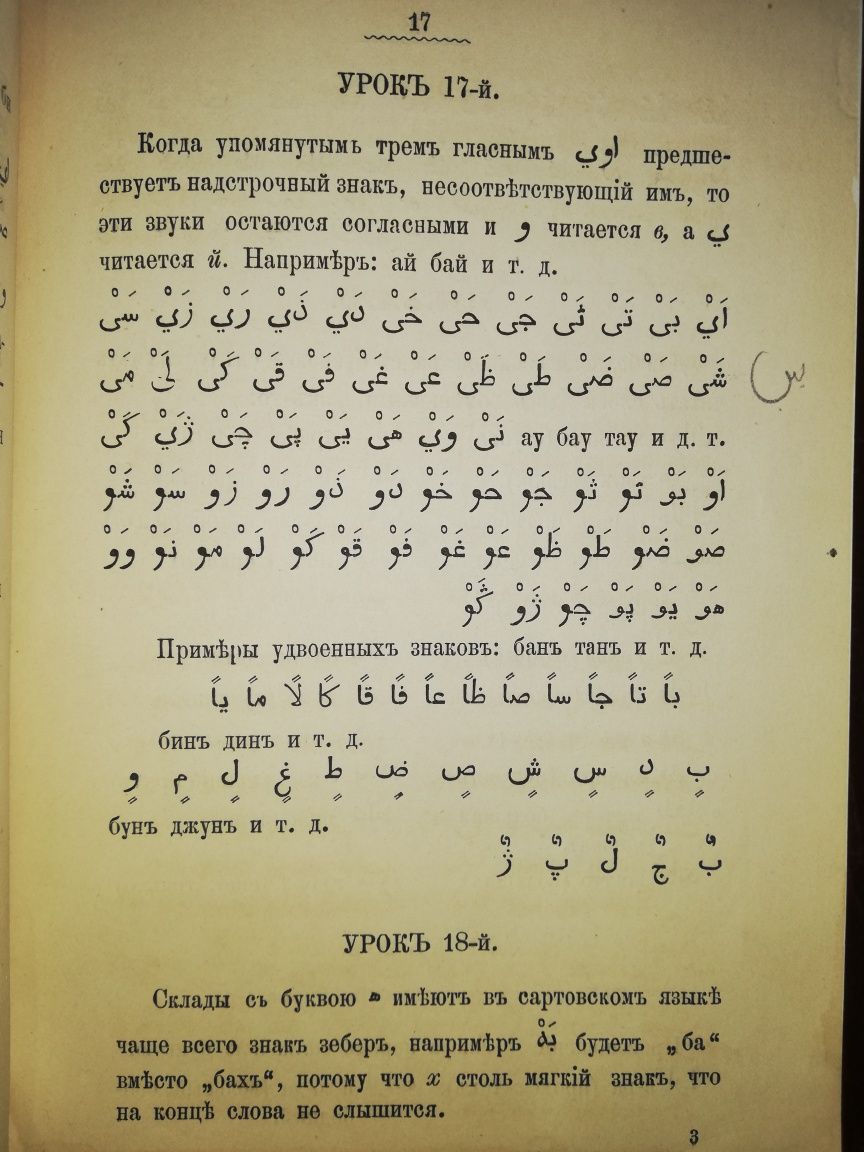 17
УРОКЪ 17-й.
Когда упомянутымъ тремъ гласнымъ اوي предше-
ствуетъ надстрочный знакъ, несоотвѣтствующій имъ, то
эти звуки остаются согласными и و читается в, а ي
читается й. Напримѣръ: ай бай и т. д.
اَيْ بَىْ تَىْ ثَىْ جَىْ حَىْ خَىْ دَيْ ذَيْ رَيْ زَيْ سَىْ
شَىْ صَىْ ضَىْ طَىْ ظَىْ عَىْ غَىْ فَىْ قَىْ كَىْ لَىْ مَىْ
س
نَىْ وَيْ هَىْ يَىْ پَىْ چَىْ ژَيْ گَىْ ау бау тау и д. т.
اَوْ بَوْ تَوْ ثَوْ جَوْ حَوْ خَوْ دَوْ ذَوْ رَوْ زَوْ سَوْ شَوْ
صَوْ ضَوْ طَوْ ظَوْ عَوْ غَوْ فَوْ قَوْ كَوْ لَوْ مَوْ نَوْ وَوْ
هَوْ يَوْ پَوْ چَوْ ژَوْ گَوْ
Примѣры удвоенныхъ знаковъ: банъ танъ и т. д.
باً تاً جاً ساً صاً ظاً عاً فاً قاً كاً لاً ماً ياً
бинъ динъ и т. д.
بٍ دٍ سٍ شٍ صٍ ضٍ طٍ غٍ لٍ مٍ وٍ
бунъ джунъ и т. д.
بٌ جٌ لٌ پٌ ژٌ
УРОКЪ 18-й.
Склады съ буквою ه имѣютъ въ сартовскомъ языкѣ
чаще всего знакъ зеберъ, напримѣръ بَهْ будетъ „ба“
вмѣсто „бахъ“, потому что х столь мягкій знакъ, что
на концѣ слова не слышится.
3